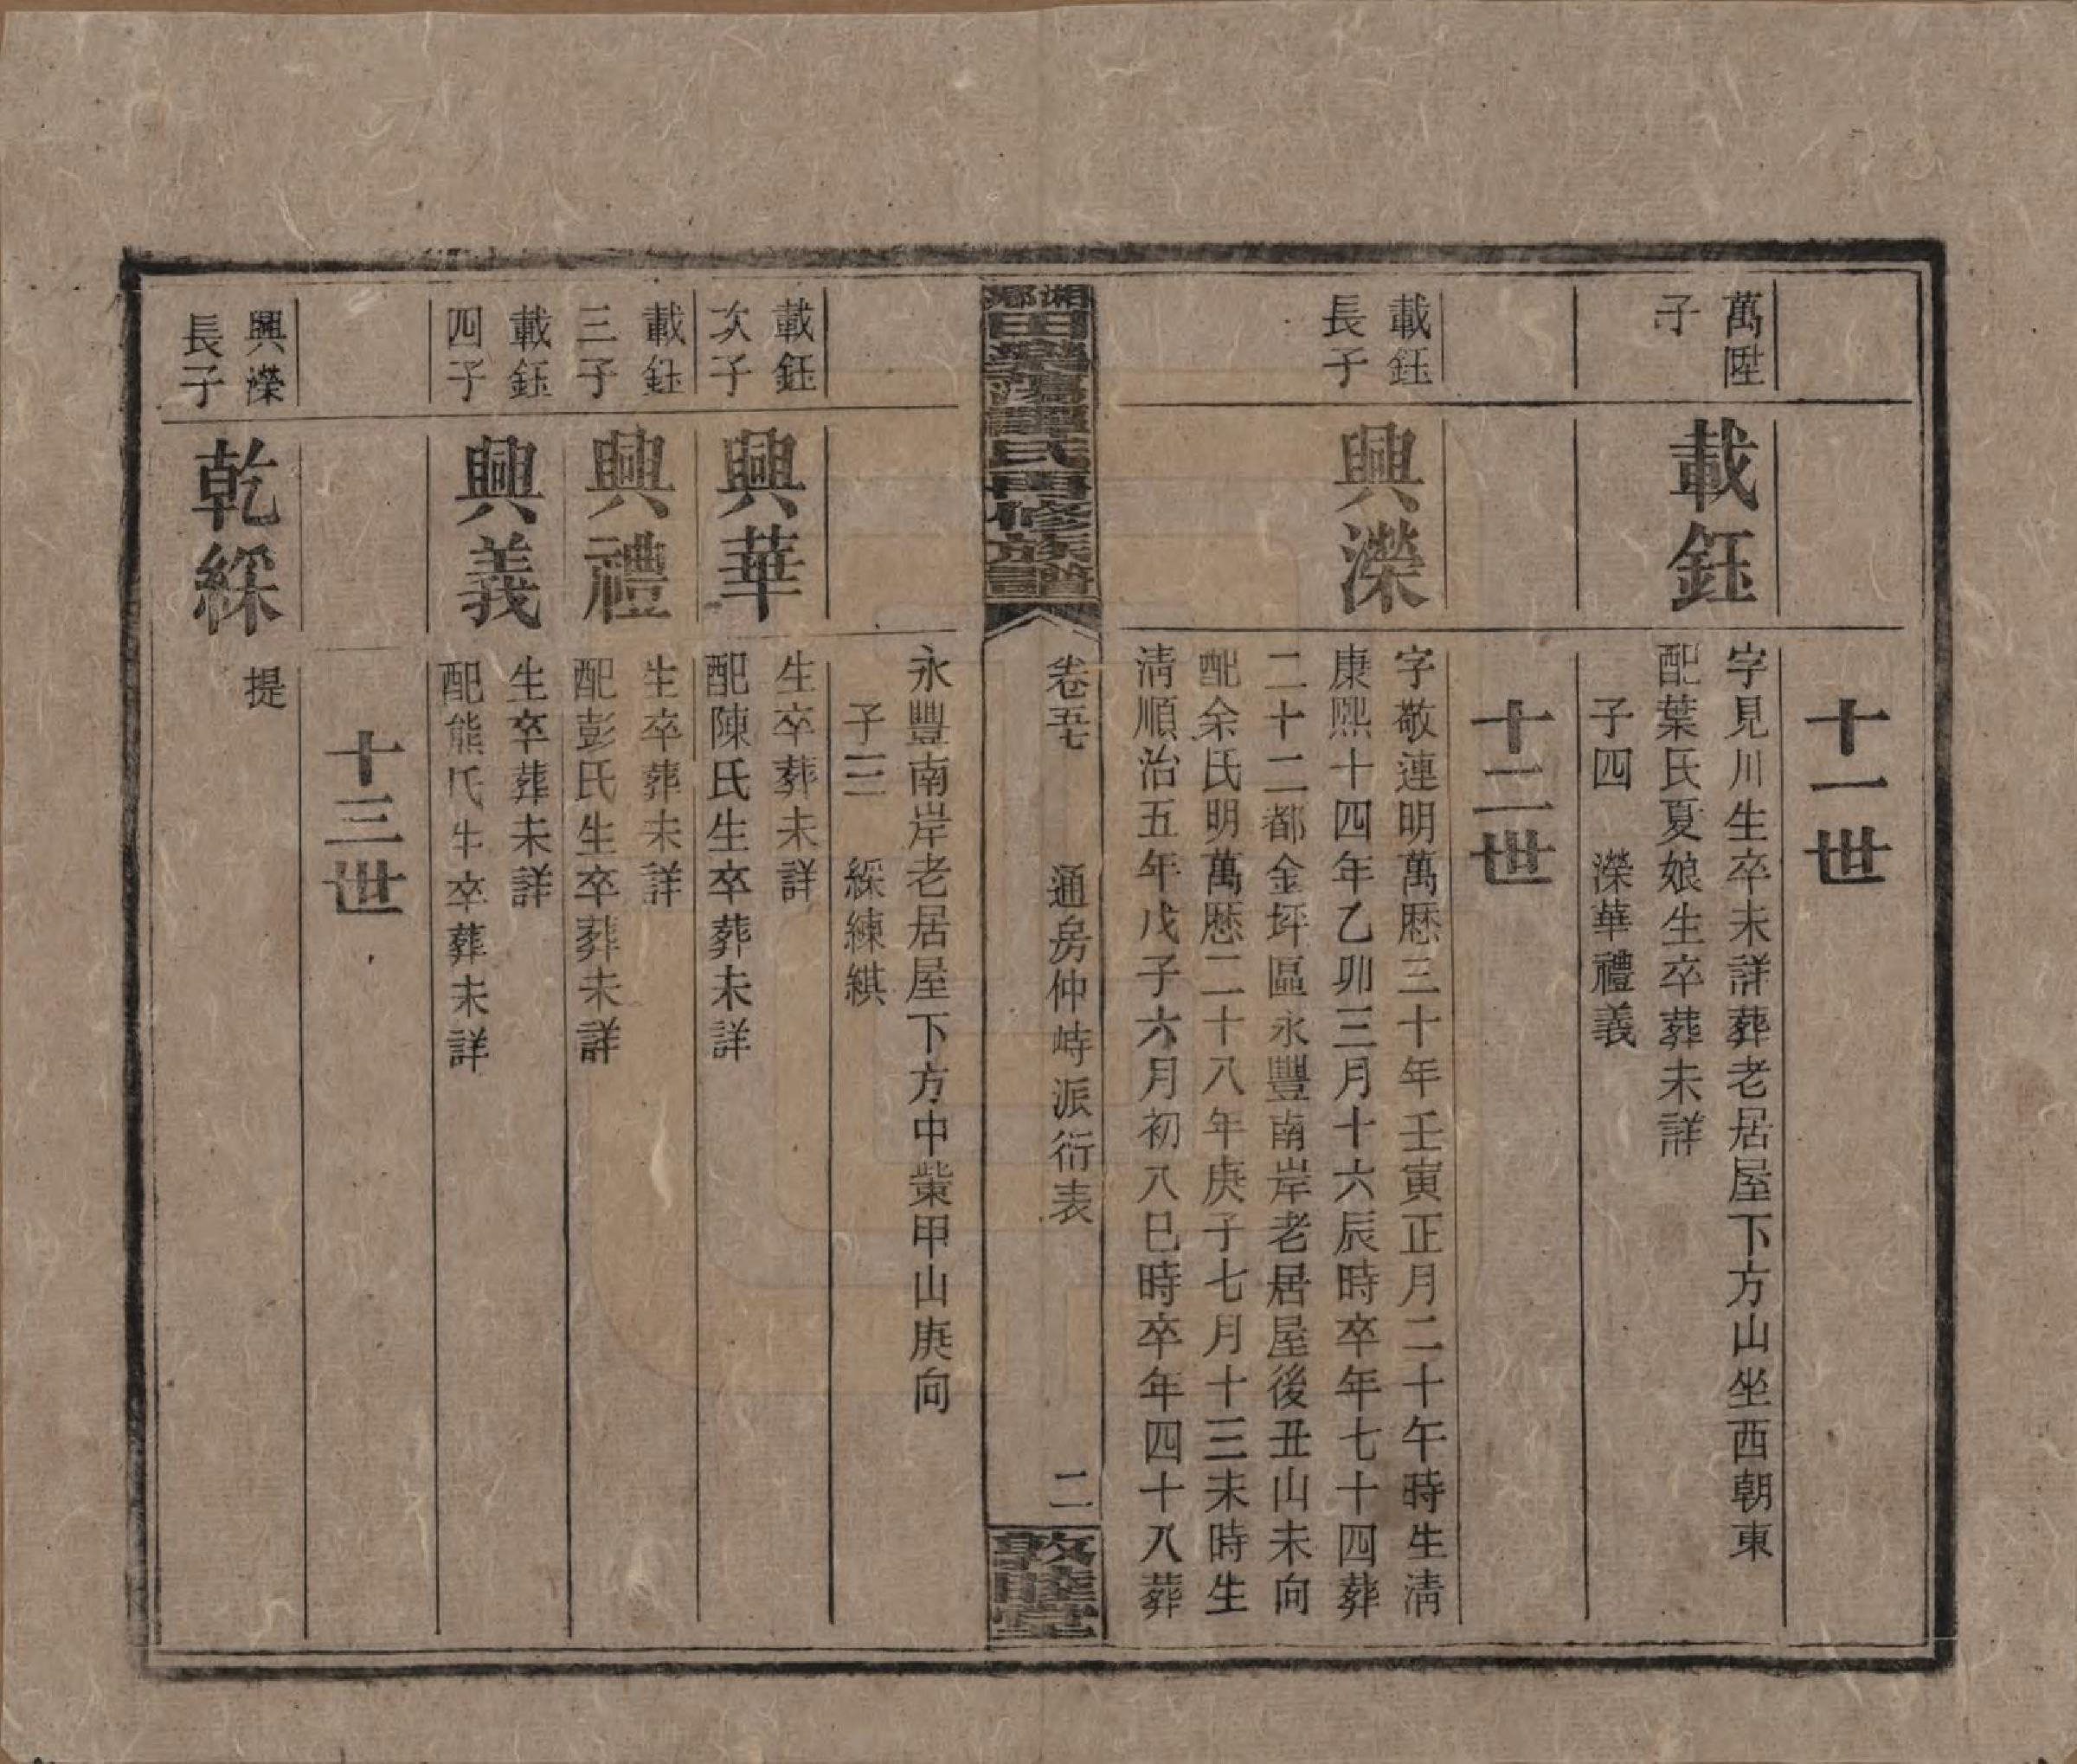 十一世
萬陞
子
載鈺
字見川生卒未詳葬老居屋下方山坐西朝東
配葉氏夏娘生卒葬未詳
子四 濚華禮義
十二世
載鈺
長子
興濚
字敬連明萬厯三十年壬寅正月二十午時生清
康熙十四年乙卯三月十六辰時卒年七十四葬
二十二都金坪區永豐南岸老居屋後丑山未向
配余氏明萬厯二十八年庚子七月十三未時生
清順治五年戊子六月初八巳時卒年四十八葬
湘鄉田樂蕩譚氏再修族譜
卷五七 通房仲峙派衍表 二
敦睦堂
永豐南岸老居屋下方中柴甲山庚向
子三 綵練綨
載鈺
次子
興華
生卒葬未詳
配陳氏生卒葬未詳
載鈺
三子
興禮
生卒葬未詳
配彭氏生卒葬未詳
載鈺
四子
興義
生卒葬未詳
配熊氏生卒葬未詳
十三世
興濚
長子
乾綵
提